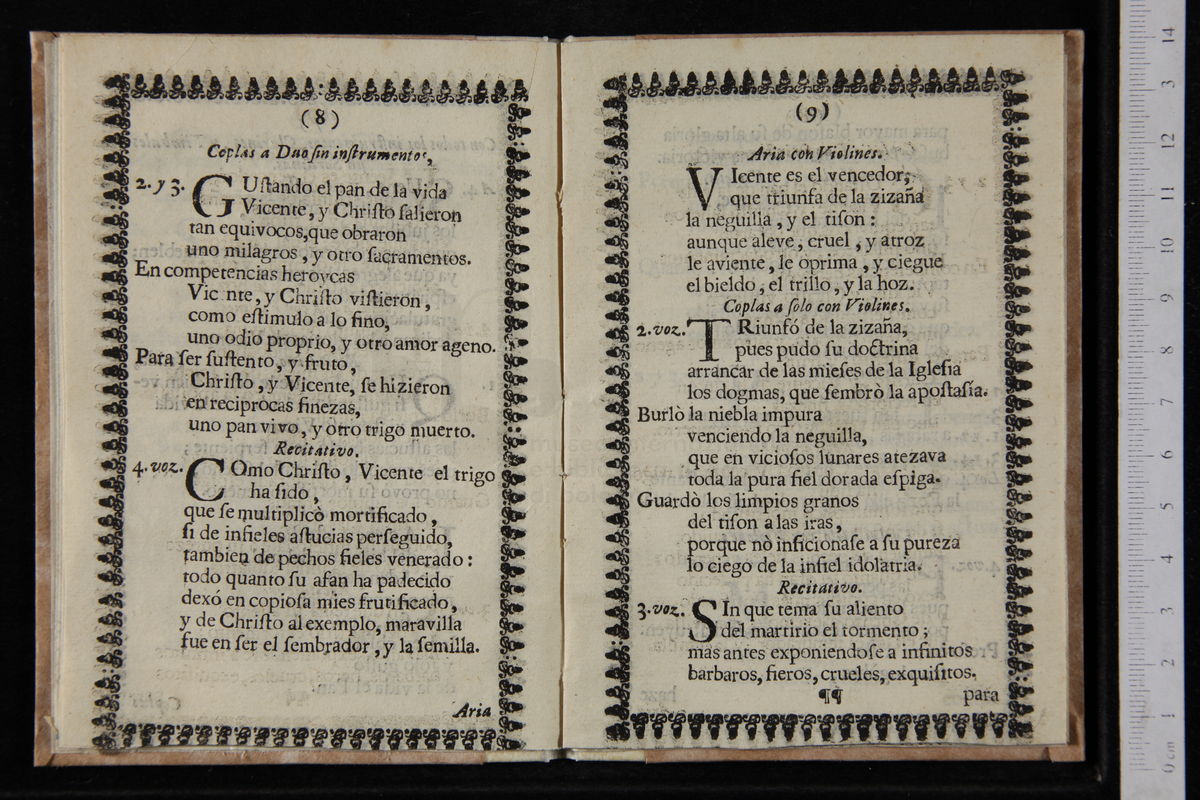 (8)
Coplas a Duo ſin inſtrumentos,
2. y 3. GUſtando el pan de la vida
Vicente, y Chriſto ſalieron
tan equivocos, que obraron
uno milagros, y otro ſacramentos.
En competencias heroycas
Vic nte, y Chriſto viſtieron,
como eſtimulo a lo fino,
uno odio proprio, y otro amor ageno.
Para ſer ſuſtento, y fruto,
Chriſto, y Vicente, ſe hizieron
en reciprocas finezas,
uno pan vivo, y otro trigo muerto.
Recitativo.
4. voz. COmo Chriſto, Vicente el trigo
ha ſido,
que ſe multiplicò mortificado,
ſi de infieles aſtucias perſeguido,
tambien de pechos fieles venerado:
todo quanto ſu afan ha padecido
dexó en copioſa mies frutificado,
y de Chriſto al exemplo, maravilla
fue en ſer el ſembrador, y la ſemilla.
Aria
(9)
Aria con Violines.
VIcente es el vencedor,
que triunfa de la zizaña
la neguilla, y el tiſon:
aunque aleve, cruel, y atroz
le aviente, le oprima, y ciegue
el bieldo, el trillo, y la hoz.
Coplas a ſolo con Violines.
2. voz. TRiunfó de la zizaña,
pues pudo ſu doctrina
arrancar de las mieſes de la Igleſia
los dogmas, que ſembrò la apoſtaſía.
Burlò la niebla impura
venciendo la neguilla,
que en vicioſos lunares atezava
toda la pura fiel dorada eſpiga.
Guardò los limpios granos
del tiſon a las iras,
porque nò inficionaſe a ſu pureza
lo ciego de la infiel idolatria.
Recitativo.
3. voz. SIn que tema ſu aliento
del martirio el tormento;
mas antes exponiendoſe a infinitos
barbaros, fieros, crueles, exquiſitos.
¶¶ para
0 cm 1 2 3 4 5 6 7 8 9 10 11 12 13 14